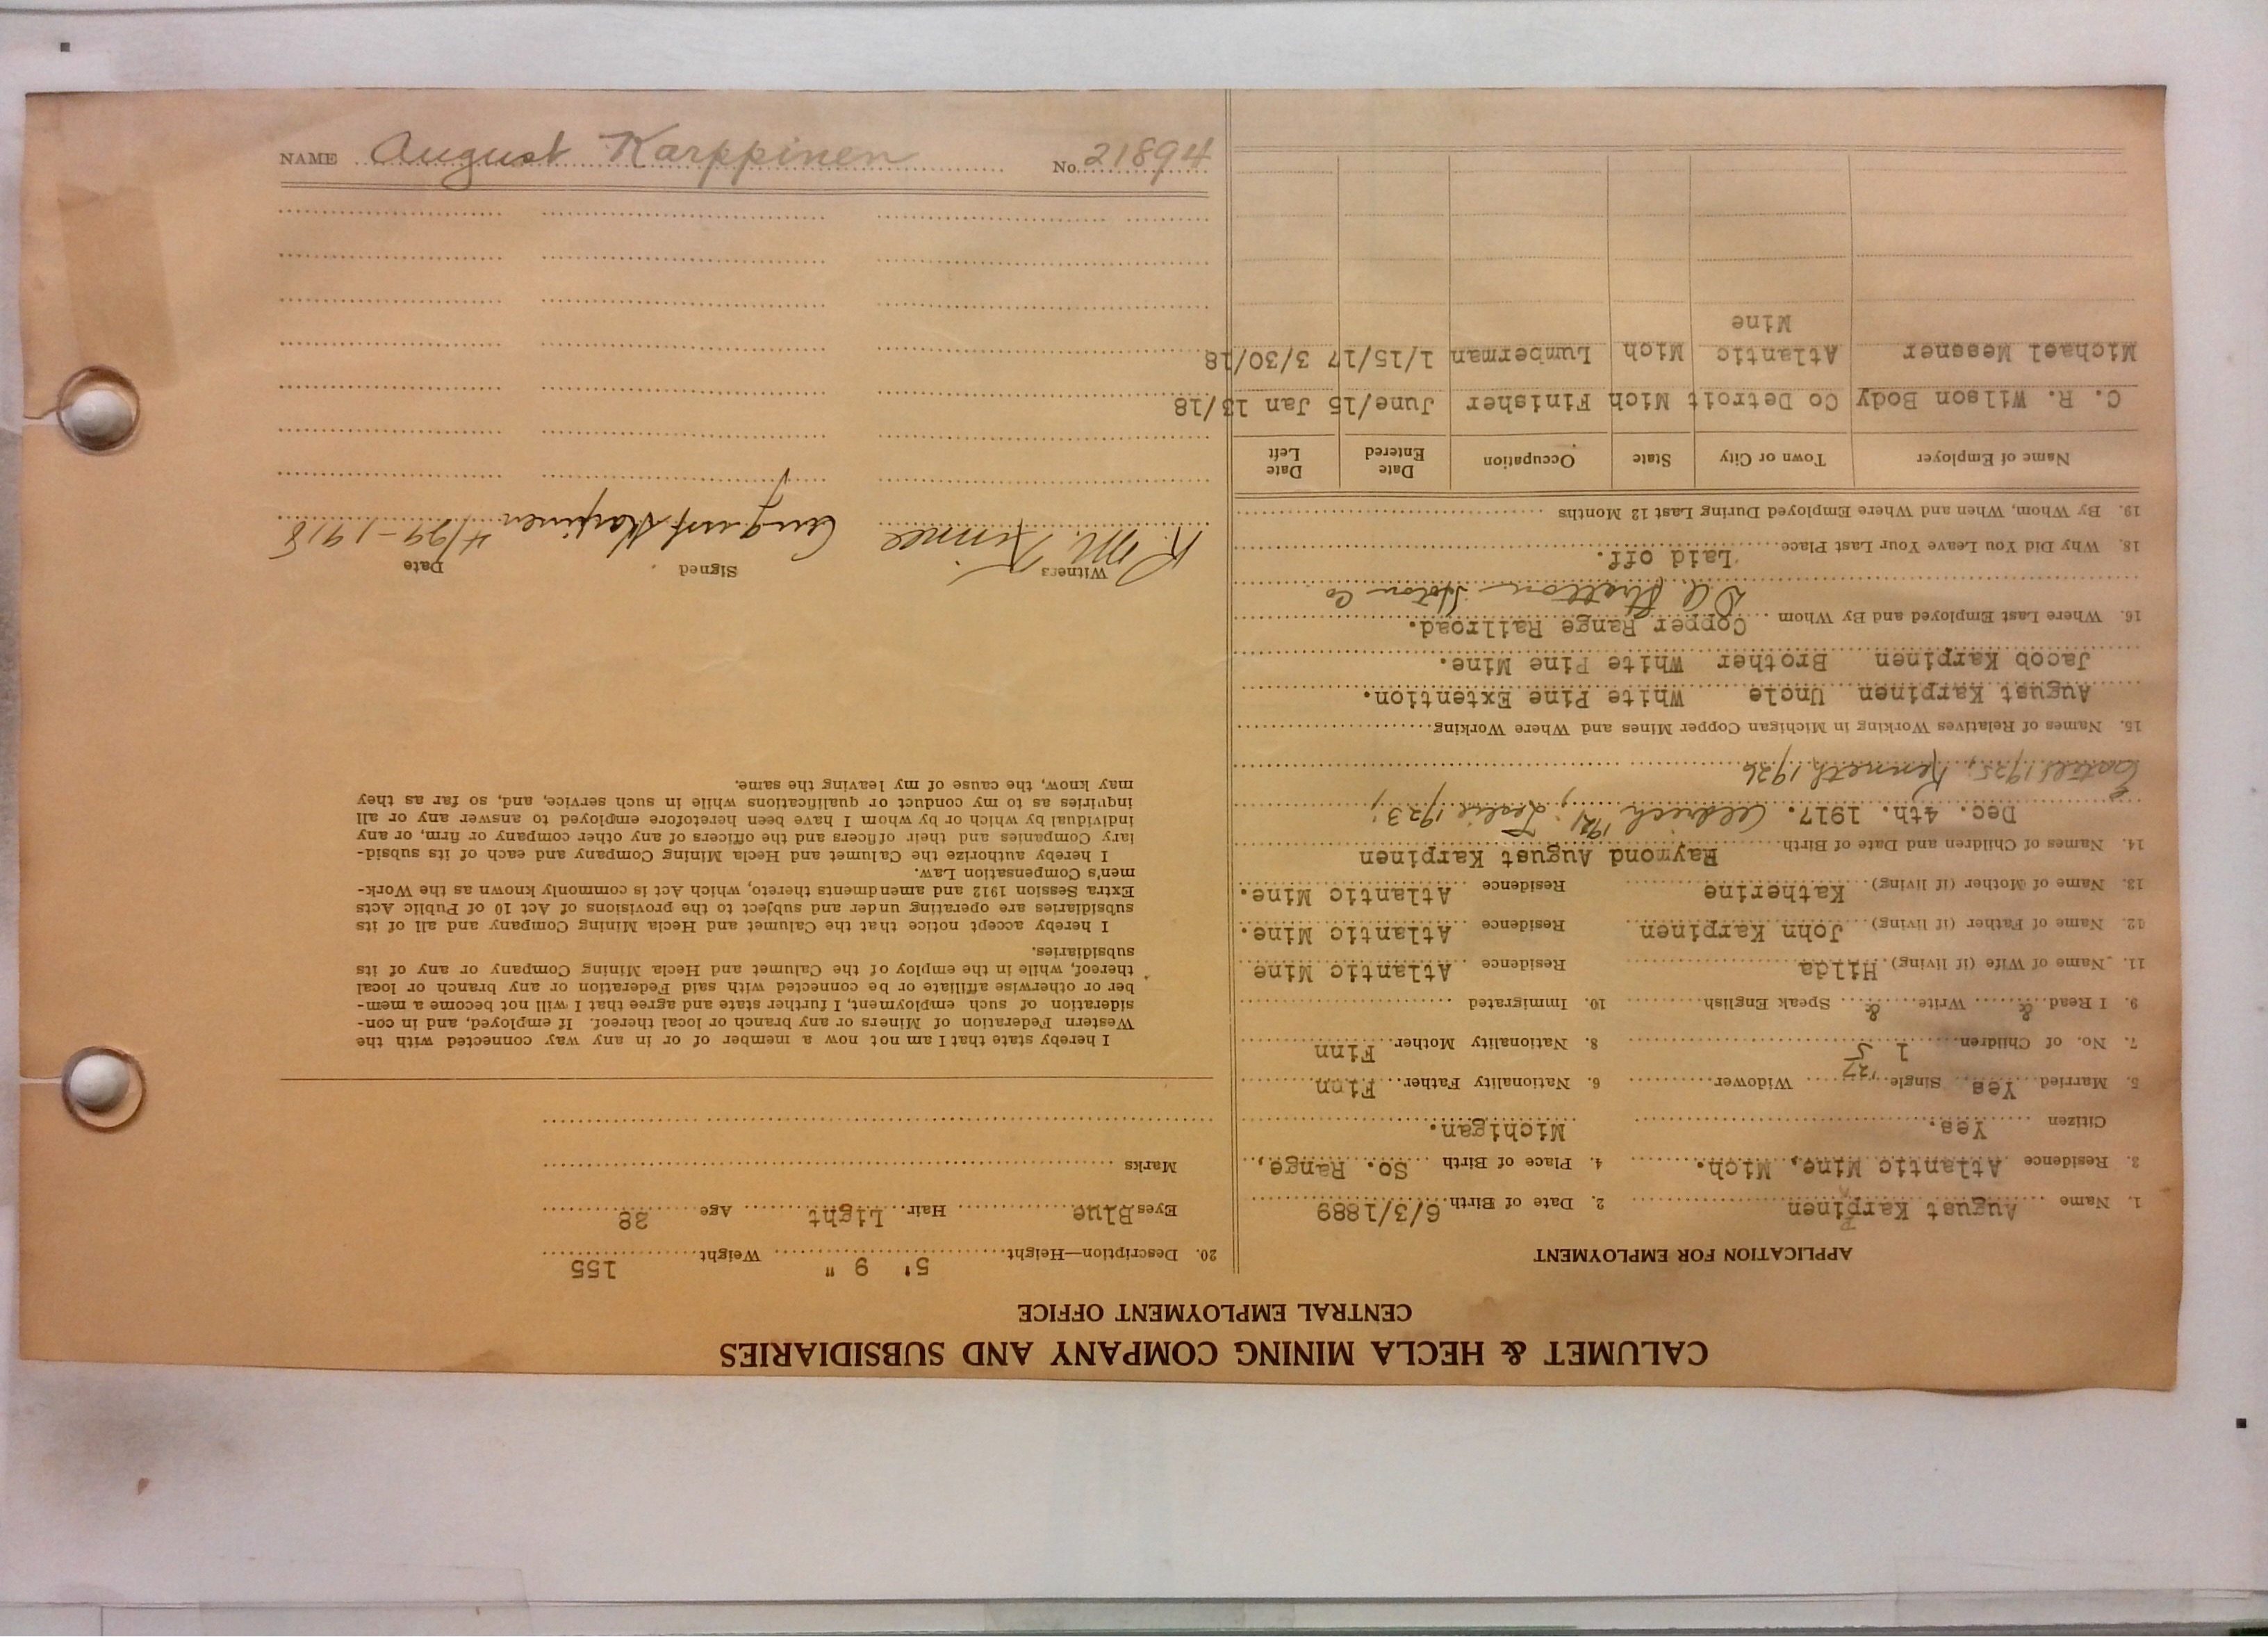 CALUMET & HECLA MINING COMPANY AND SUBSIDIARIES
CENTRAL EMPLOYMENT OFFICE
APPLICATION FOR EMPLOYMENT
1. Name August Karpinen 2. Date of Birth 6/3/1889
3. Residence Atlantic Mine, Mich. 4. Place of Birth So. Range,
Citizen Yes. Michigan.
5. Married Yes Single '27 Widower 6. Nationality Father Finn
7. No. of Children 1 5 8. Nationality Mother Finn
9. I Read & Write & Speak English 10. Immigrated
11. Name of Wife (if living) Hilda Residence Atlantic Mine
12. Name of Father (if living) John Karpinen Residence Atlantic Mine.
13. Name of Mother (if living) Katherine Residence Atlantic Mine.
14. Names of Children and Date of Birth Raymond August Karpinen
Dec. 4th. 1917. Aldrich 1921; Leslie 1923;
1925; Kenneth 1926
15. Names of Relatives Working in Michigan Copper Mines and Where Working
August Karpinen Uncle White Pine Extention.
Jacob Karpinen Brother White Pine Mine.
16. Where Last Employed and By Whom Copper Range Railroad.
Co
18. Why Did You Leave Your Last Place Laid off.
19. By Whom, When and Where Employed During Last 12 Months
Name of Employer Town or City State Occupation Date Entered Date Left
C. R. Wilson Body Co Detroit Mich Finisher June/15 Jan 13/18
Michael Messner Atlantic Mich Lumberman 1/15/17 3/30/18
Mine
20. Description—Height 5' 9" Weight 155
Eyes Blue Hair Light Age 28
Marks
I hereby state that I am not now a member of or in any way connected with the
Western Federation of Miners or any branch or local thereof. If employed, and in con-
sideration of such employment, I further state and agree that I will not become a mem-
ber or otherwise affiliate or be connected with said Federation or any branch or local
thereof, while in the employ of the Calumet and Hecla Mining Company or any of its
subsidiaries.
I hereby accept notice that the Calumet and Hecla Mining Company and all of its
subsidiaries are operating under and subject to the provisions of Act 10 of Public Acts
Extra Session 1912 and amendments thereto, which Act is commonly known as the Work-
men's Compensation Law.
I hereby authorize the Calumet and Hecla Mining Company and each of its subsid-
iary Companies and their officers and the officers of any other company or firm, or any
individual by which or by whom I have been heretofore employed to answer any or all
inquiries as to my conduct or qualifications while in such service, and, so far as they
may know, the cause of my leaving the same.
Witness Signed Date
R. M. August Karpinen 4/29-1918
NAME August Karppinen No. 21894